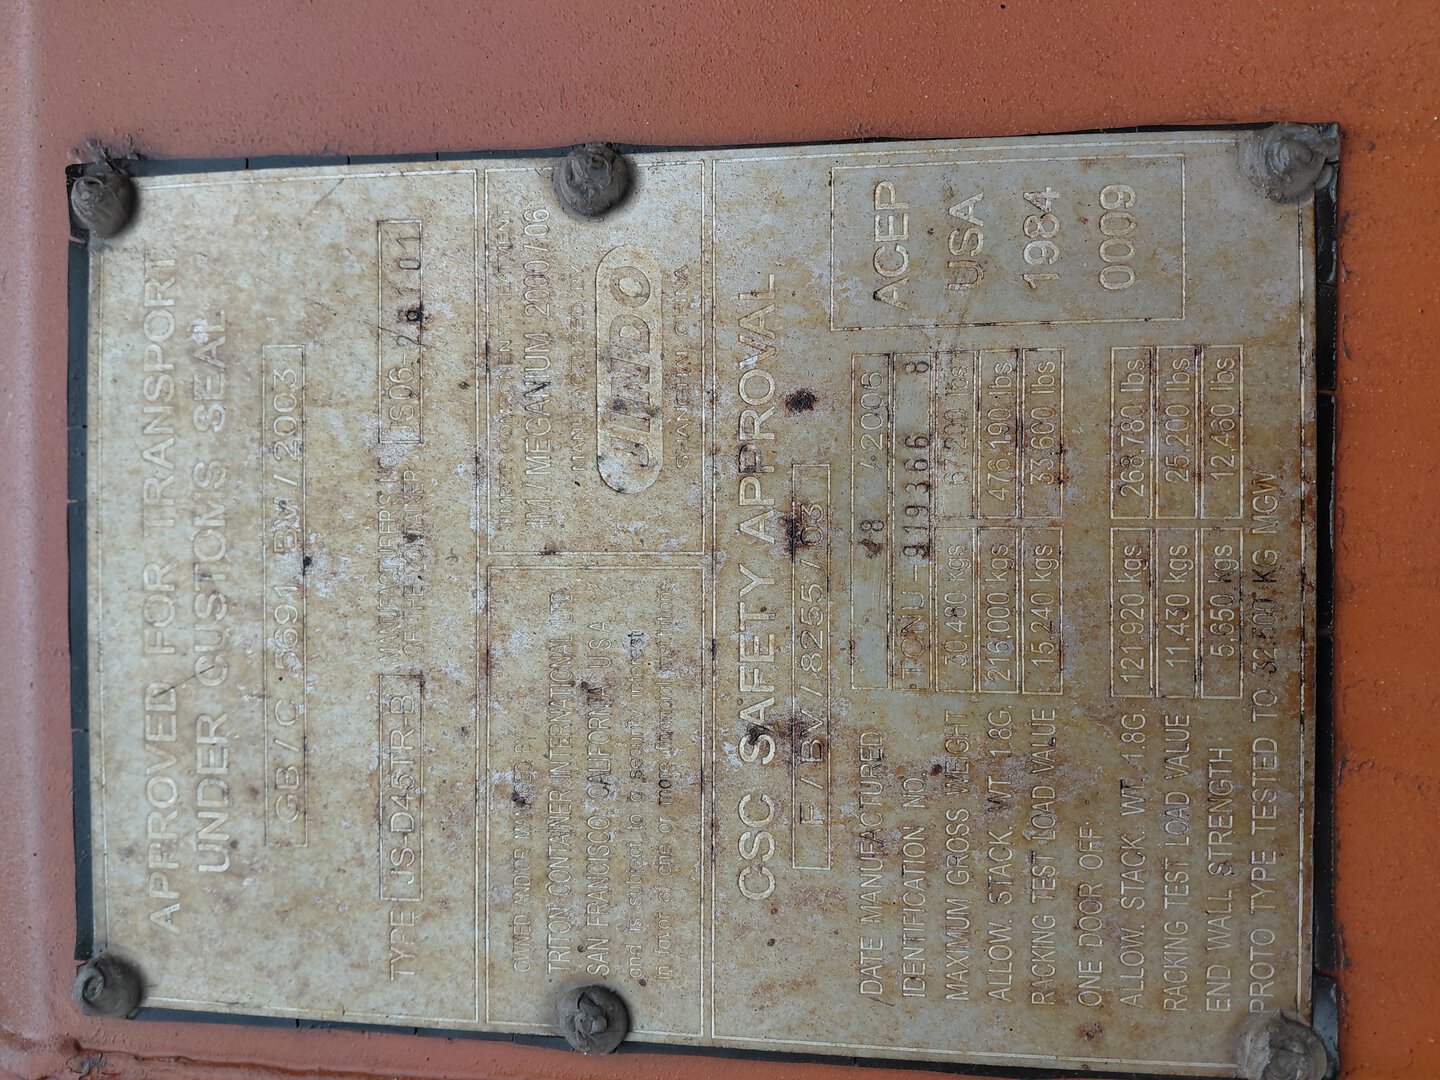 APPROVED FOR TRANSPORT
UNDER CUSTOMS SEAL
GB / C 5691 BV / 2003
TYPE JS-D45TR-B MANUFACTURER'S NO. OF THE CONTAINER JS06-
OWNED AND/OR MANAGED BY
TRITON CONTAINER INTERNATIONAL LTD
SAN FRANCISCO, CALIFORNIA, U.S.A.
and is subject to a security interest
in favor of one or more financial institutions
TIMBER COMPONENT TREATMENT
IM1/MEGANIUM 2000/06
MANUFACTURED BY
JINDO
SHANGHAI CHINA
CSC SAFETY APPROVAL
F / BV / 8255 / 03
DATE MANUFACTURED / 2005
IDENTIFICATION NO. TCNU - 919366 8
MAXIMUM GROSS WEIGHT 30,480 kgs lbs
ALLOW. STACK. WT. 1.8G. 216,000 kgs 476,190 lbs
RACKING TEST LOAD VALUE 15,240 kgs 33,600 lbs
ONE DOOR OFF:
ALLOW. STACK. WT. 1.8G. 121,920 kgs 268,780 lbs
RACKING TEST LOAD VALUE 11,430 kgs 25,200 lbs
END WALL STRENGTH 5,650 kgs 12,460 lbs
PROTO TYPE TESTED TO 32,500 KG MGW
ACEP
USA
1984
0009